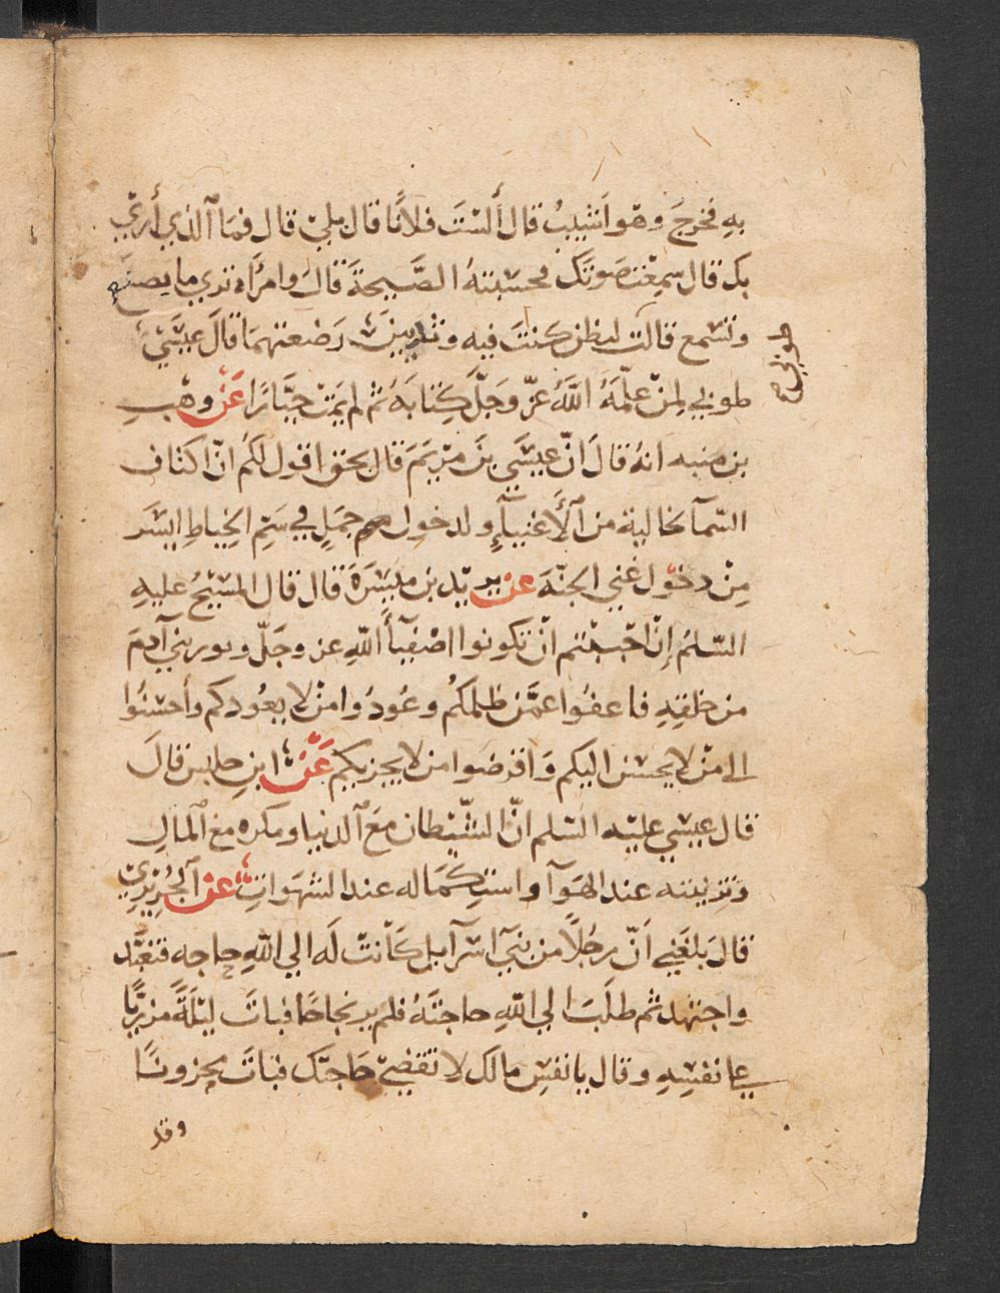 بهِ فخرجَ وهو اَشيبُ قال ألستَ فلانًا قال بلي قال فما الذي أري
بك قال سمعت صَوتَك فحسبتهُ الصَّيحةَ قال وامرأه تري ما يصنع
وتسمع قالت لبطن كنتَ فيه وثديين رَضعتهمَا قالَ عيسَي
طوبي لِمنْ علّمَهُ اللَّهُ عزّ وجَلّ كِتابهُ ثم لم يَمت جبَّارًا عَنْ وهْبِ
بن منبه انهُ قالَ انّ عيسَي بنَ مرْيَمَ قال بحق اقول لكم انّ اكناف
السّمآ خالية من الأغنيآءِ ولدخول جمَلٍ في سَمِّ الخِياطِ ايسَر
مِنْ دخول غني الجنّة عن يزيد بن ميسَرَةَ قال قال المسيحُ عليهِ
السّلمُ إن احببتم انْ تكونوا اصْفيآأَ اللهِ عز وجَلّ ونور بني آدمَ
من خلقِهِ فاعفُوا عمَّن ظلمكُم وعُودُوا منْ لا يعُودكم وأحسنُوا
الي منْ لا يحسن اليكم وَاقرضَوا من لا يجزيكم عَنْ ابنِ حلبس قالَ
قال عيسي عليْه السّلم انّ الشّيْطان معَ الدنيا ومكره معَ المالِ
وَتزيينه عند الهَوآ واستكمَاله عند الشهَواتِ عن الجُريْريّ
قال بَلغَني اَنّ رجُلاً من بَنيَ اسْرآيل كَانتْ لَه الي اللهِ حاجه فتعَبَّد
واجتهَد ثم طلَبَ الي اللهِ حاجتَهُ فلم ير نجاحًا فباتَ ليْلَةً مزريًا
علي نفسِهِ وقال يا نفسِ مالك لا تقضيْ حَاجتك فباتَ محزونًا
وقد
طوبي